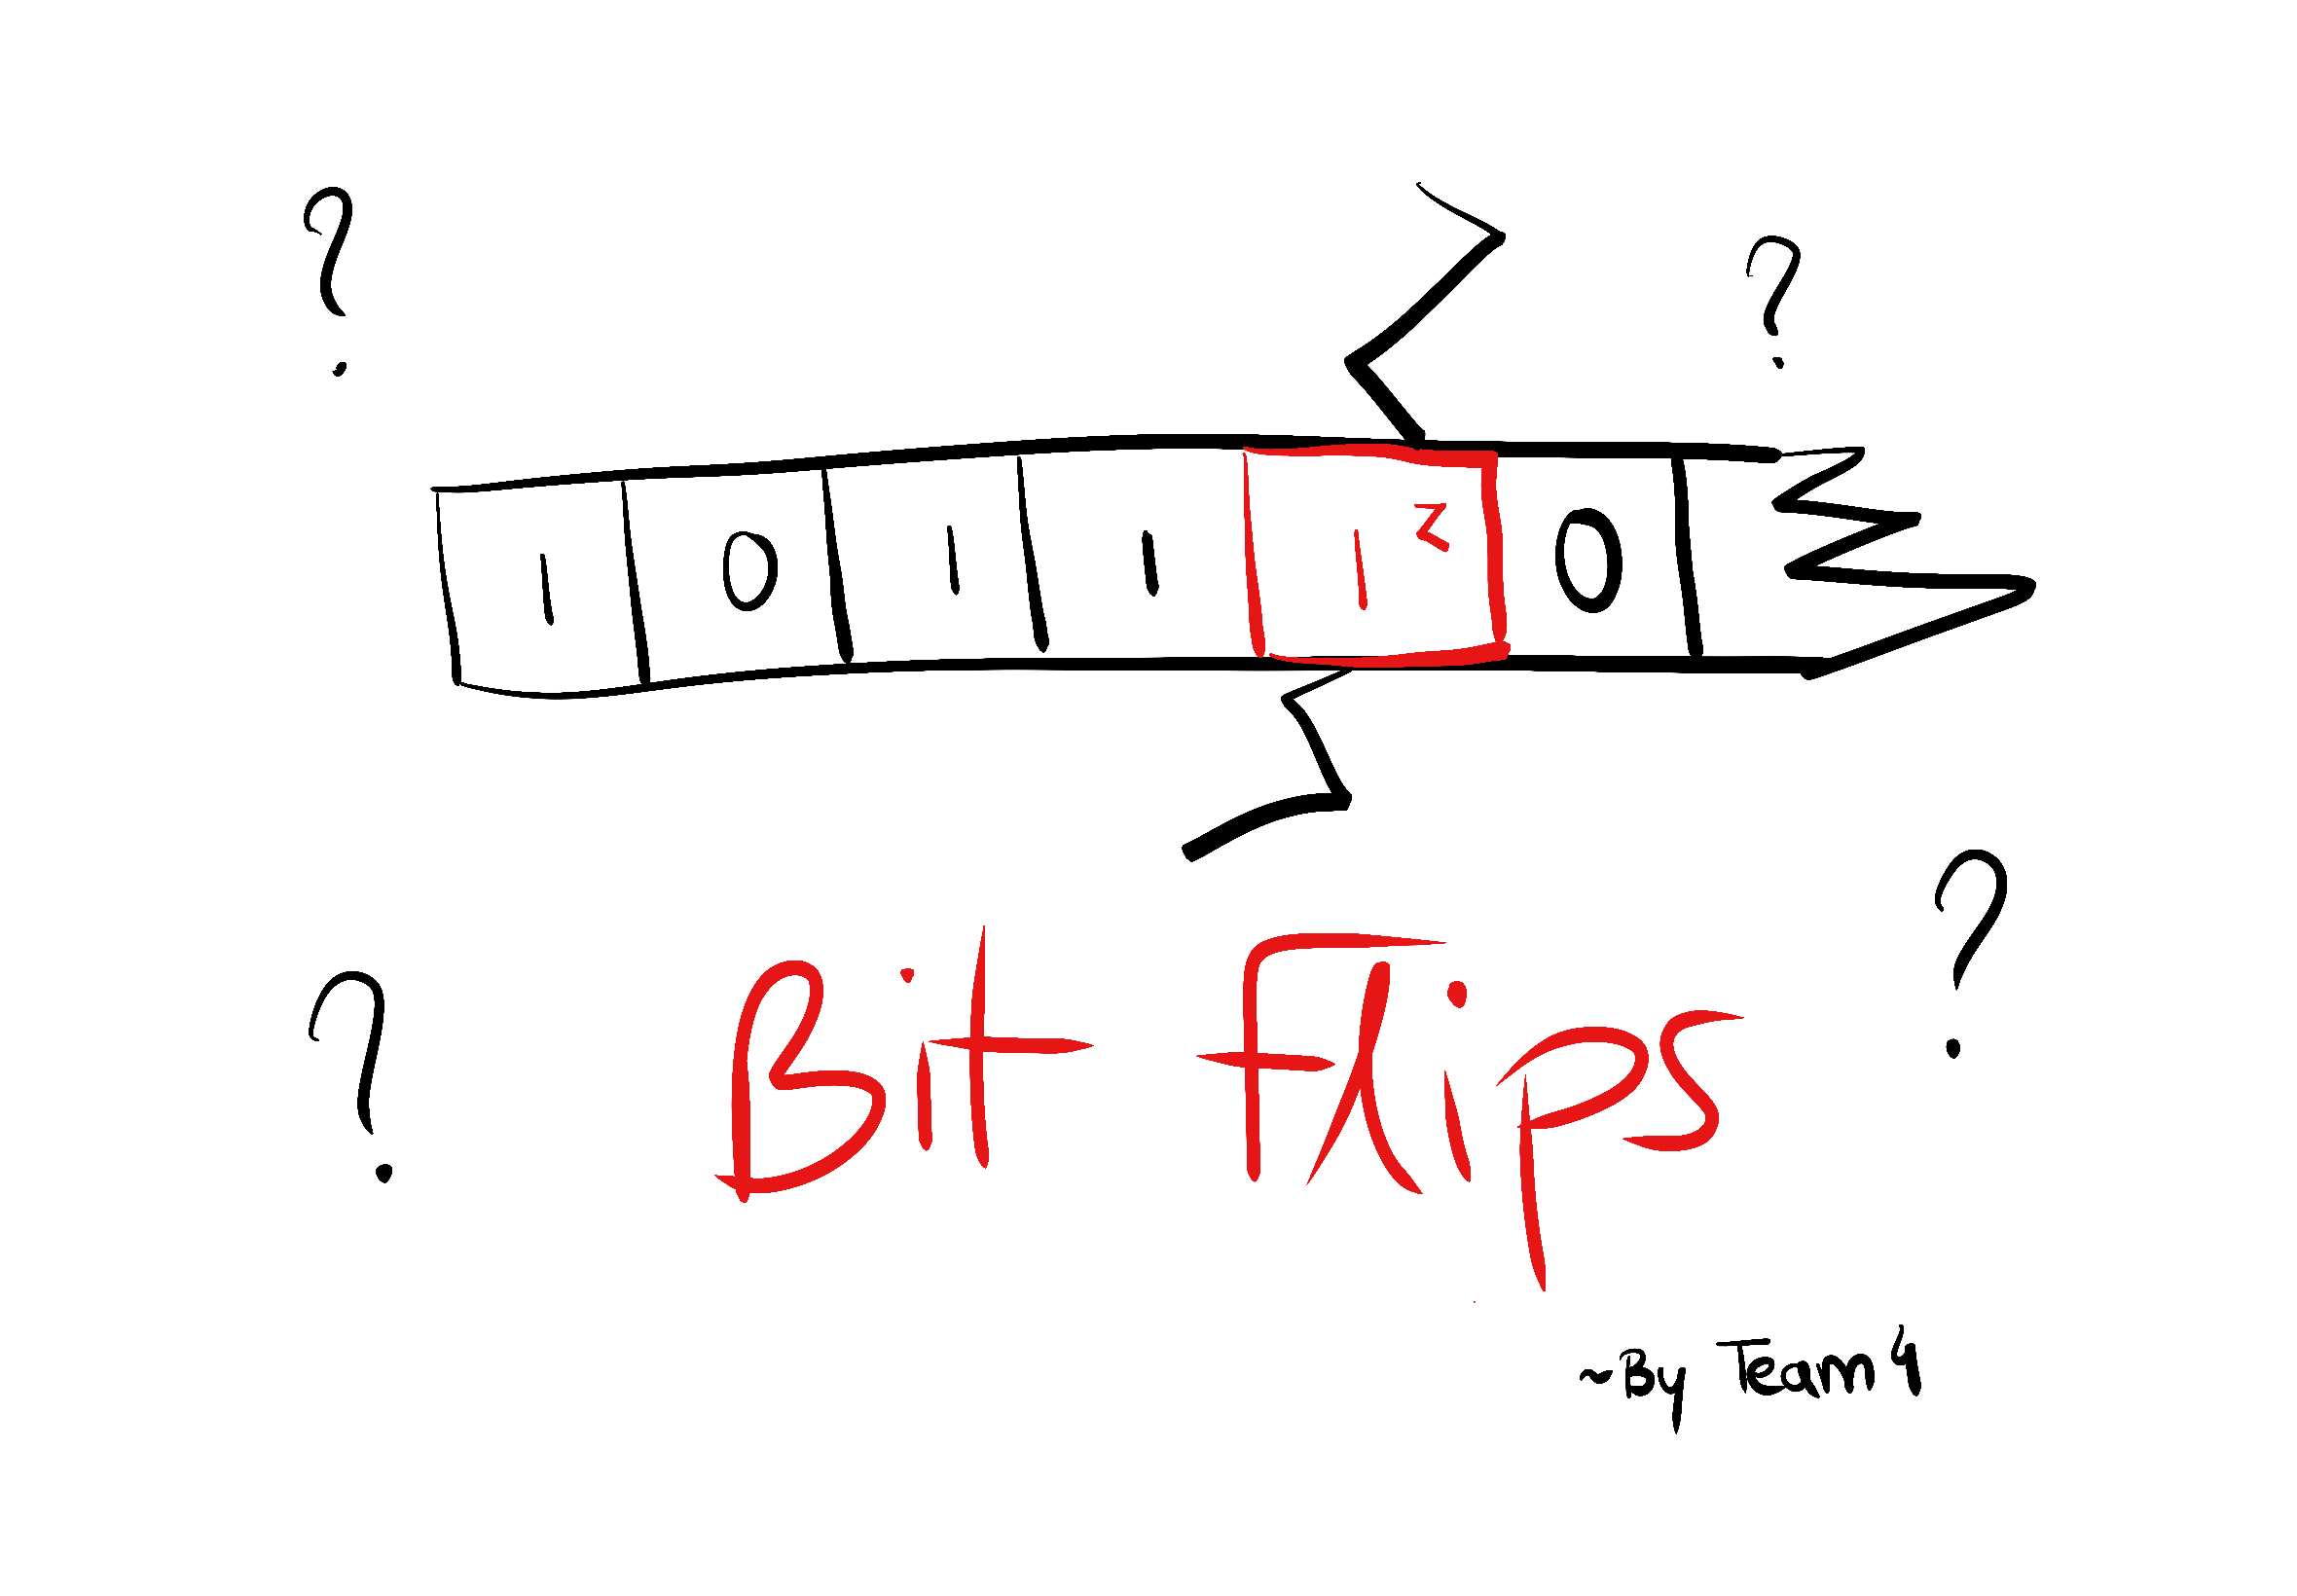 ? ?
1 0 1 1 1 0
? ?
Bit Flips
~By Team 4